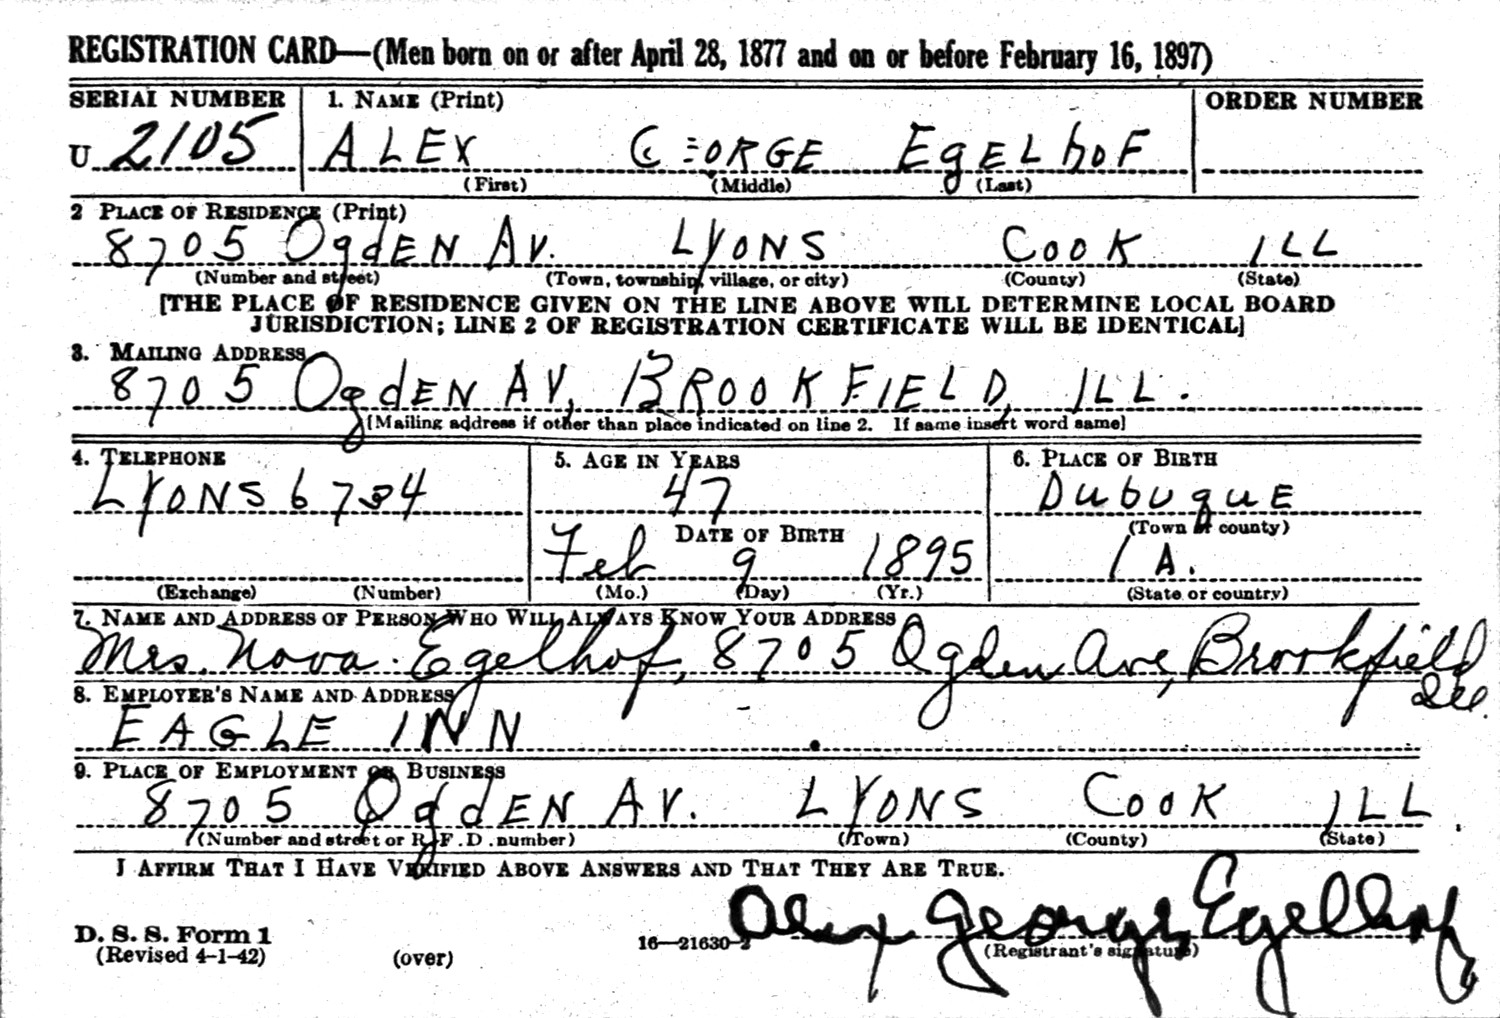 REGISTRATION CARD—(Men born on or after April 28, 1877 and on or before February 16, 1897)
SERIAL NUMBER 1. NAME (Print) ORDER NUMBER
U 2105 ALEX GEORGE EgELhoF
(First) (Middle) (Last)
2 PLACE OF RESIDENCE (Print)
8705 OgdEN AV. LYONS COOK ILL
(Number and street) (Town, township, village, or city) (County) (State)
[THE PLACE OF RESIDENCE GIVEN ON THE LINE ABOVE WILL DETERMINE LOCAL BOARD
JURISDICTION; LINE 2 OF REGISTRATION CERTIFICATE WILL BE IDENTICAL]
3. MAILING ADDRESS
8705 OgdEN AV, BROOKFIELD, ILL.
[Mailing address if other than place indicated on line 2. If same insert word same]
4. TELEPHONE 5. AGE IN YEARS 6. PLACE OF BIRTH
LYONS 6734 47 DubuquE
DATE OF BIRTH (Town or county)
Feb 9 1895 IA.
(Exchange) (Number) (Mo.) (Day) (Yr.) (State or country)
7. NAME AND ADDRESS OF PERSON WHO WILL ALWAYS KNOW YOUR ADDRESS
Mrs. Nova Egelhof, 8705 Ogden Ave, Brookfield
Ill.
8. EMPLOYER'S NAME AND ADDRESS
EAGLE INN
9. PLACE OF EMPLOYMENT OR BUSINESS
8705 OgdEN AV. LYONS COOK ILL
(Number and street or R. F. D. number) (Town) (County) (State)
I AFFIRM THAT I HAVE VERIFIED ABOVE ANSWERS AND THAT THEY ARE TRUE.
Alex George Egelhof
D. S. S. Form 1 16—21630-2 (Registrant's signature)
(Revised 4-1-42) (over)